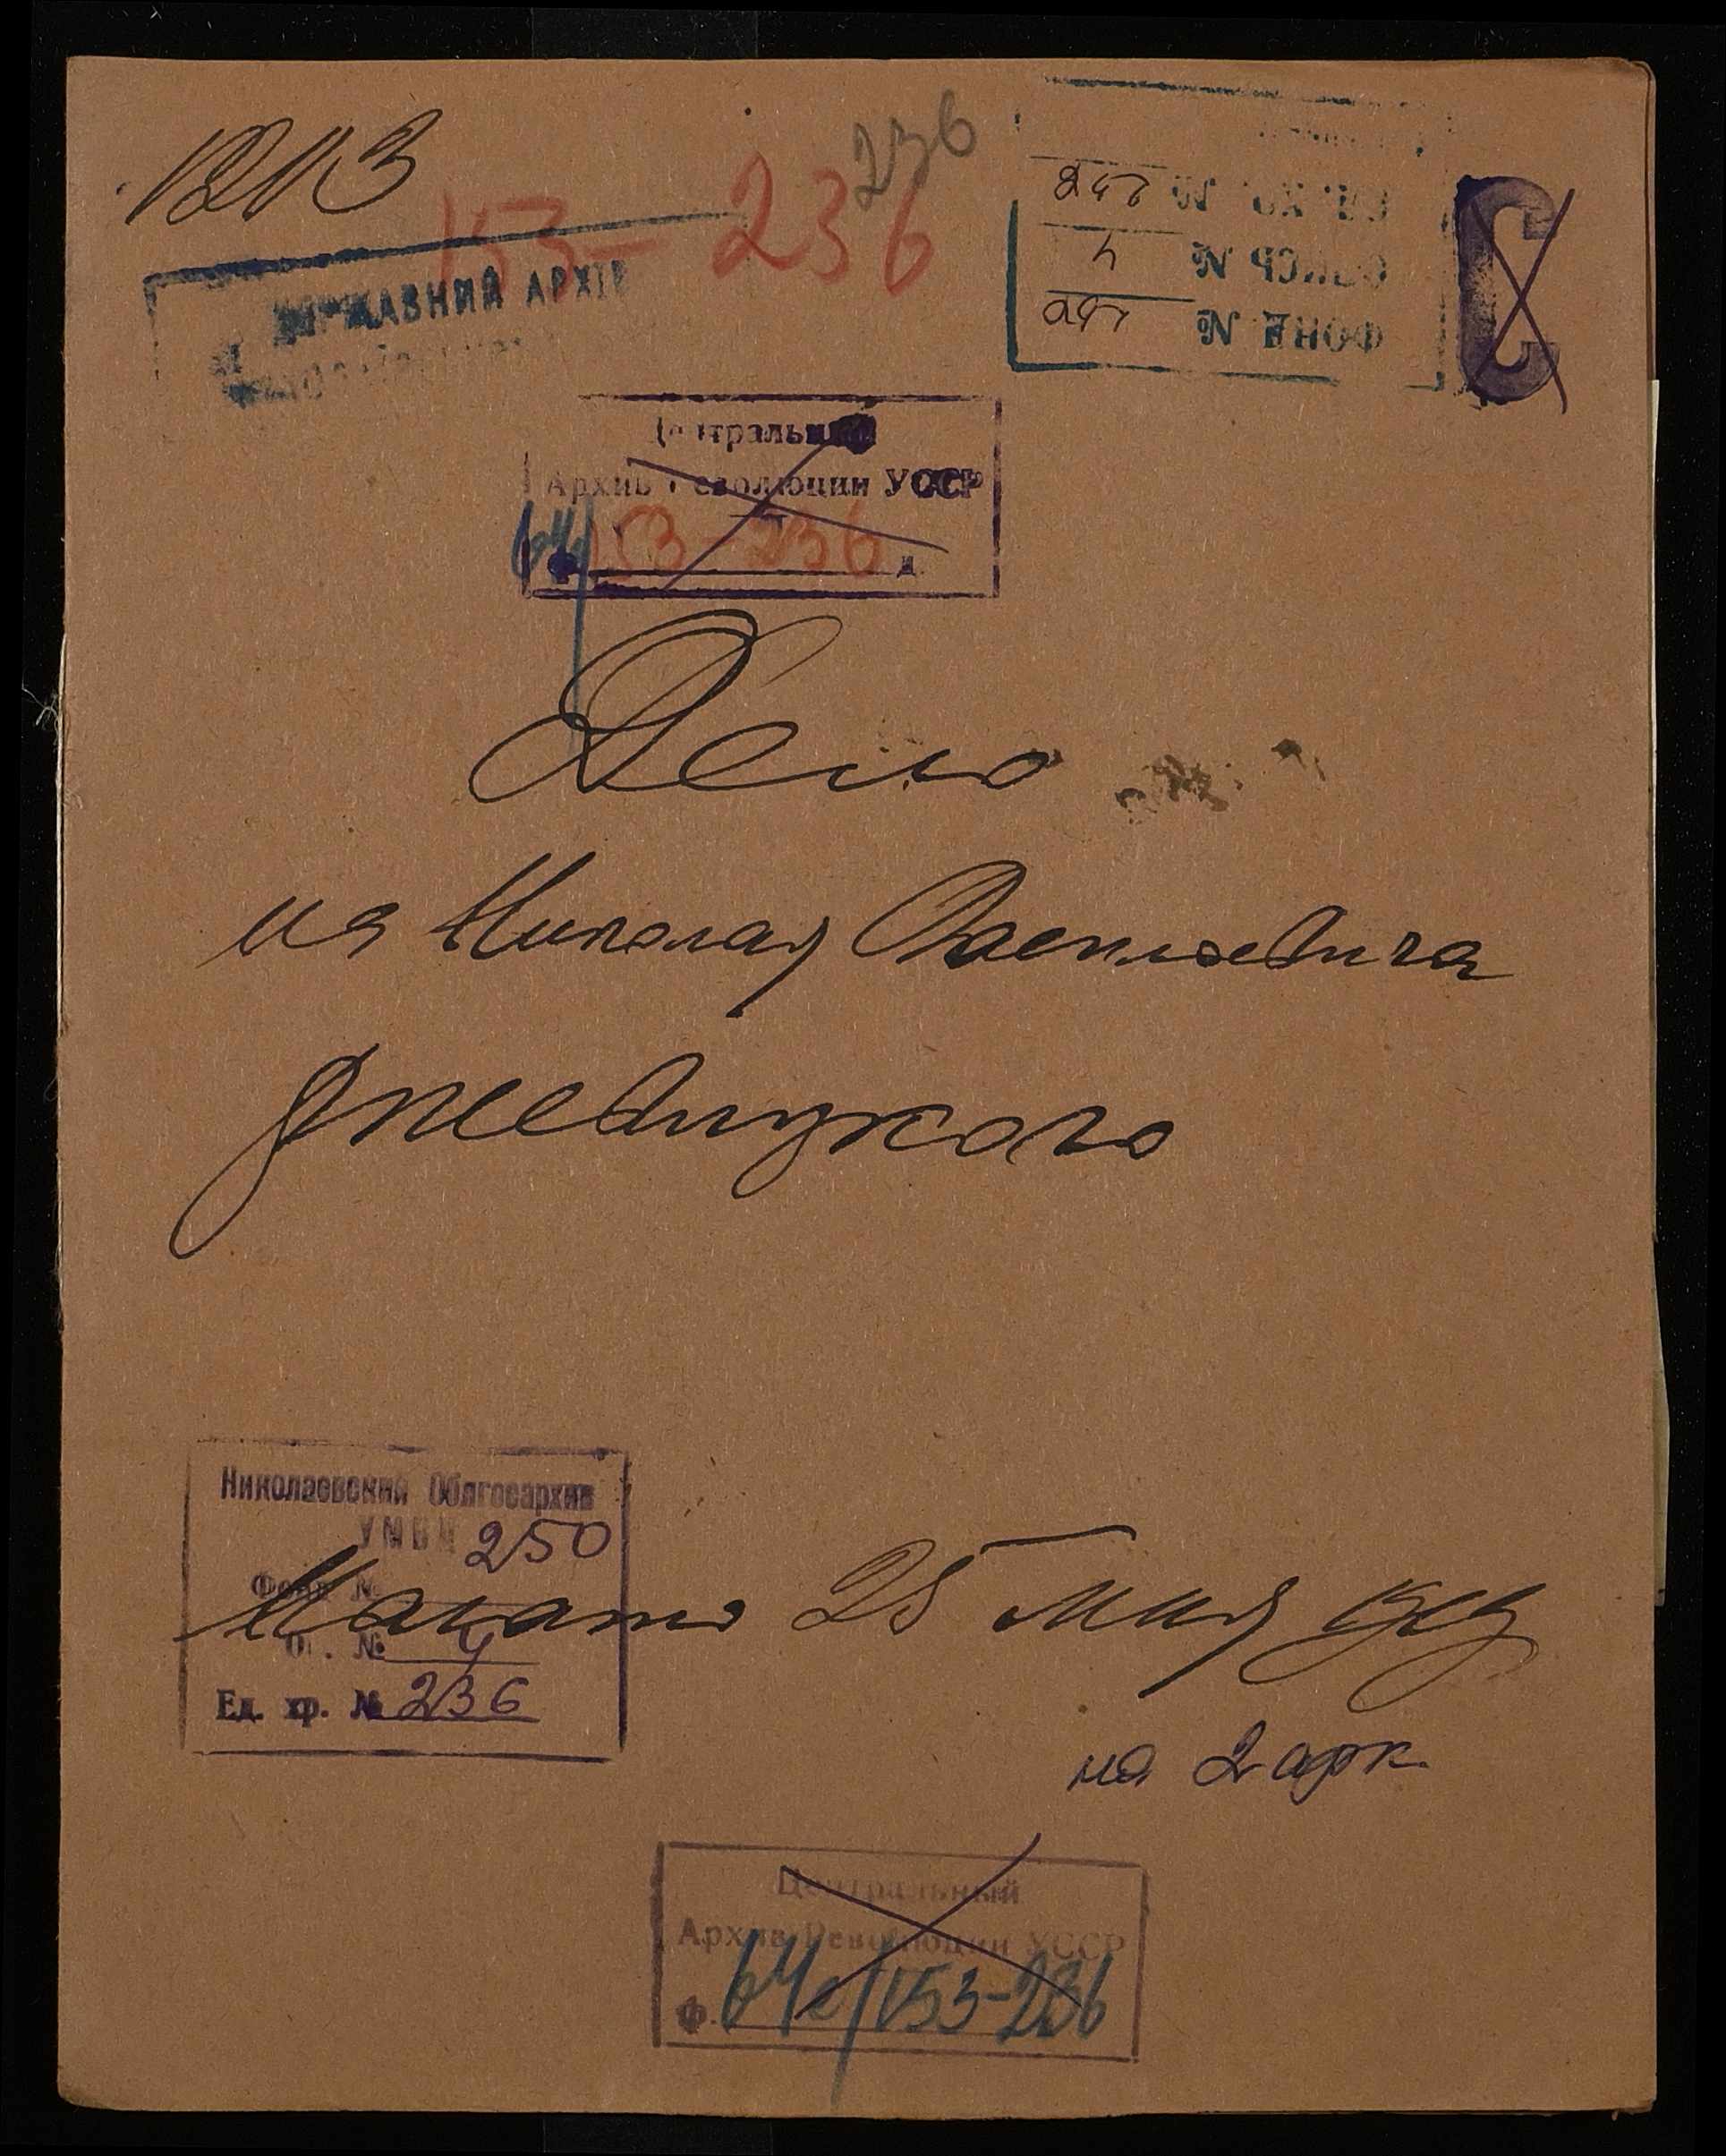 236
153-236
ДЕРЖАВНИЙ АРХІВ
ФОНД №
ОПИСЬ №
ЕД. ХР. №
Центральный
Архив Революции УССР
153-236 д.
Дело
на Николая Васильевича
Джевицкого
Николаевский Облгосархив
УМВД
Фонд № 250
Оп. № 4
Ед. хр. № 236
Начато 25 мая
на 2 арк.
Центральный
Архив Революции УССР
Ф. 64с/153-236